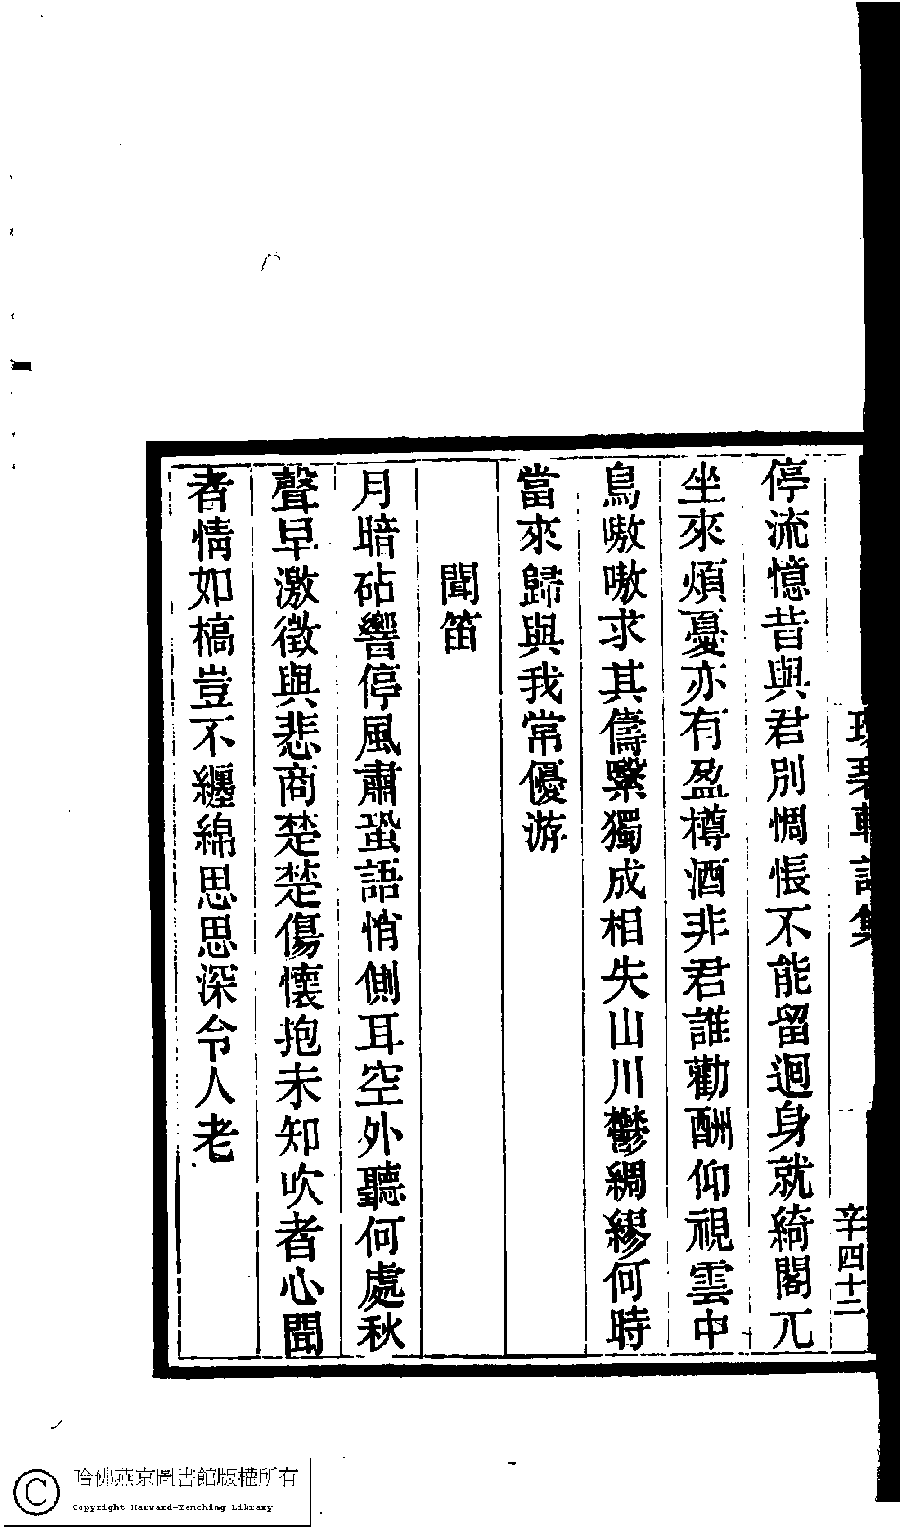 集
辛四十二
停流憶昔與君別惆悵不能留迴身就綺閣兀
坐來煩憂亦有盈樽酒非君誰勸酬仰視雲中
鳥嗷嗷求其儔繄獨成相失山川鬱綢繆何時
當來歸與我常優游
聞笛
月暗砧響停風肅蛩語悄側耳空外聽何處秋
聲早激徵與悲商楚楚傷懷抱未知吹者心聞
者情如槁豈不纏綿思思深令人老
哈佛燕京圖書館版權所有
Copyright Harvard-Yenching Library